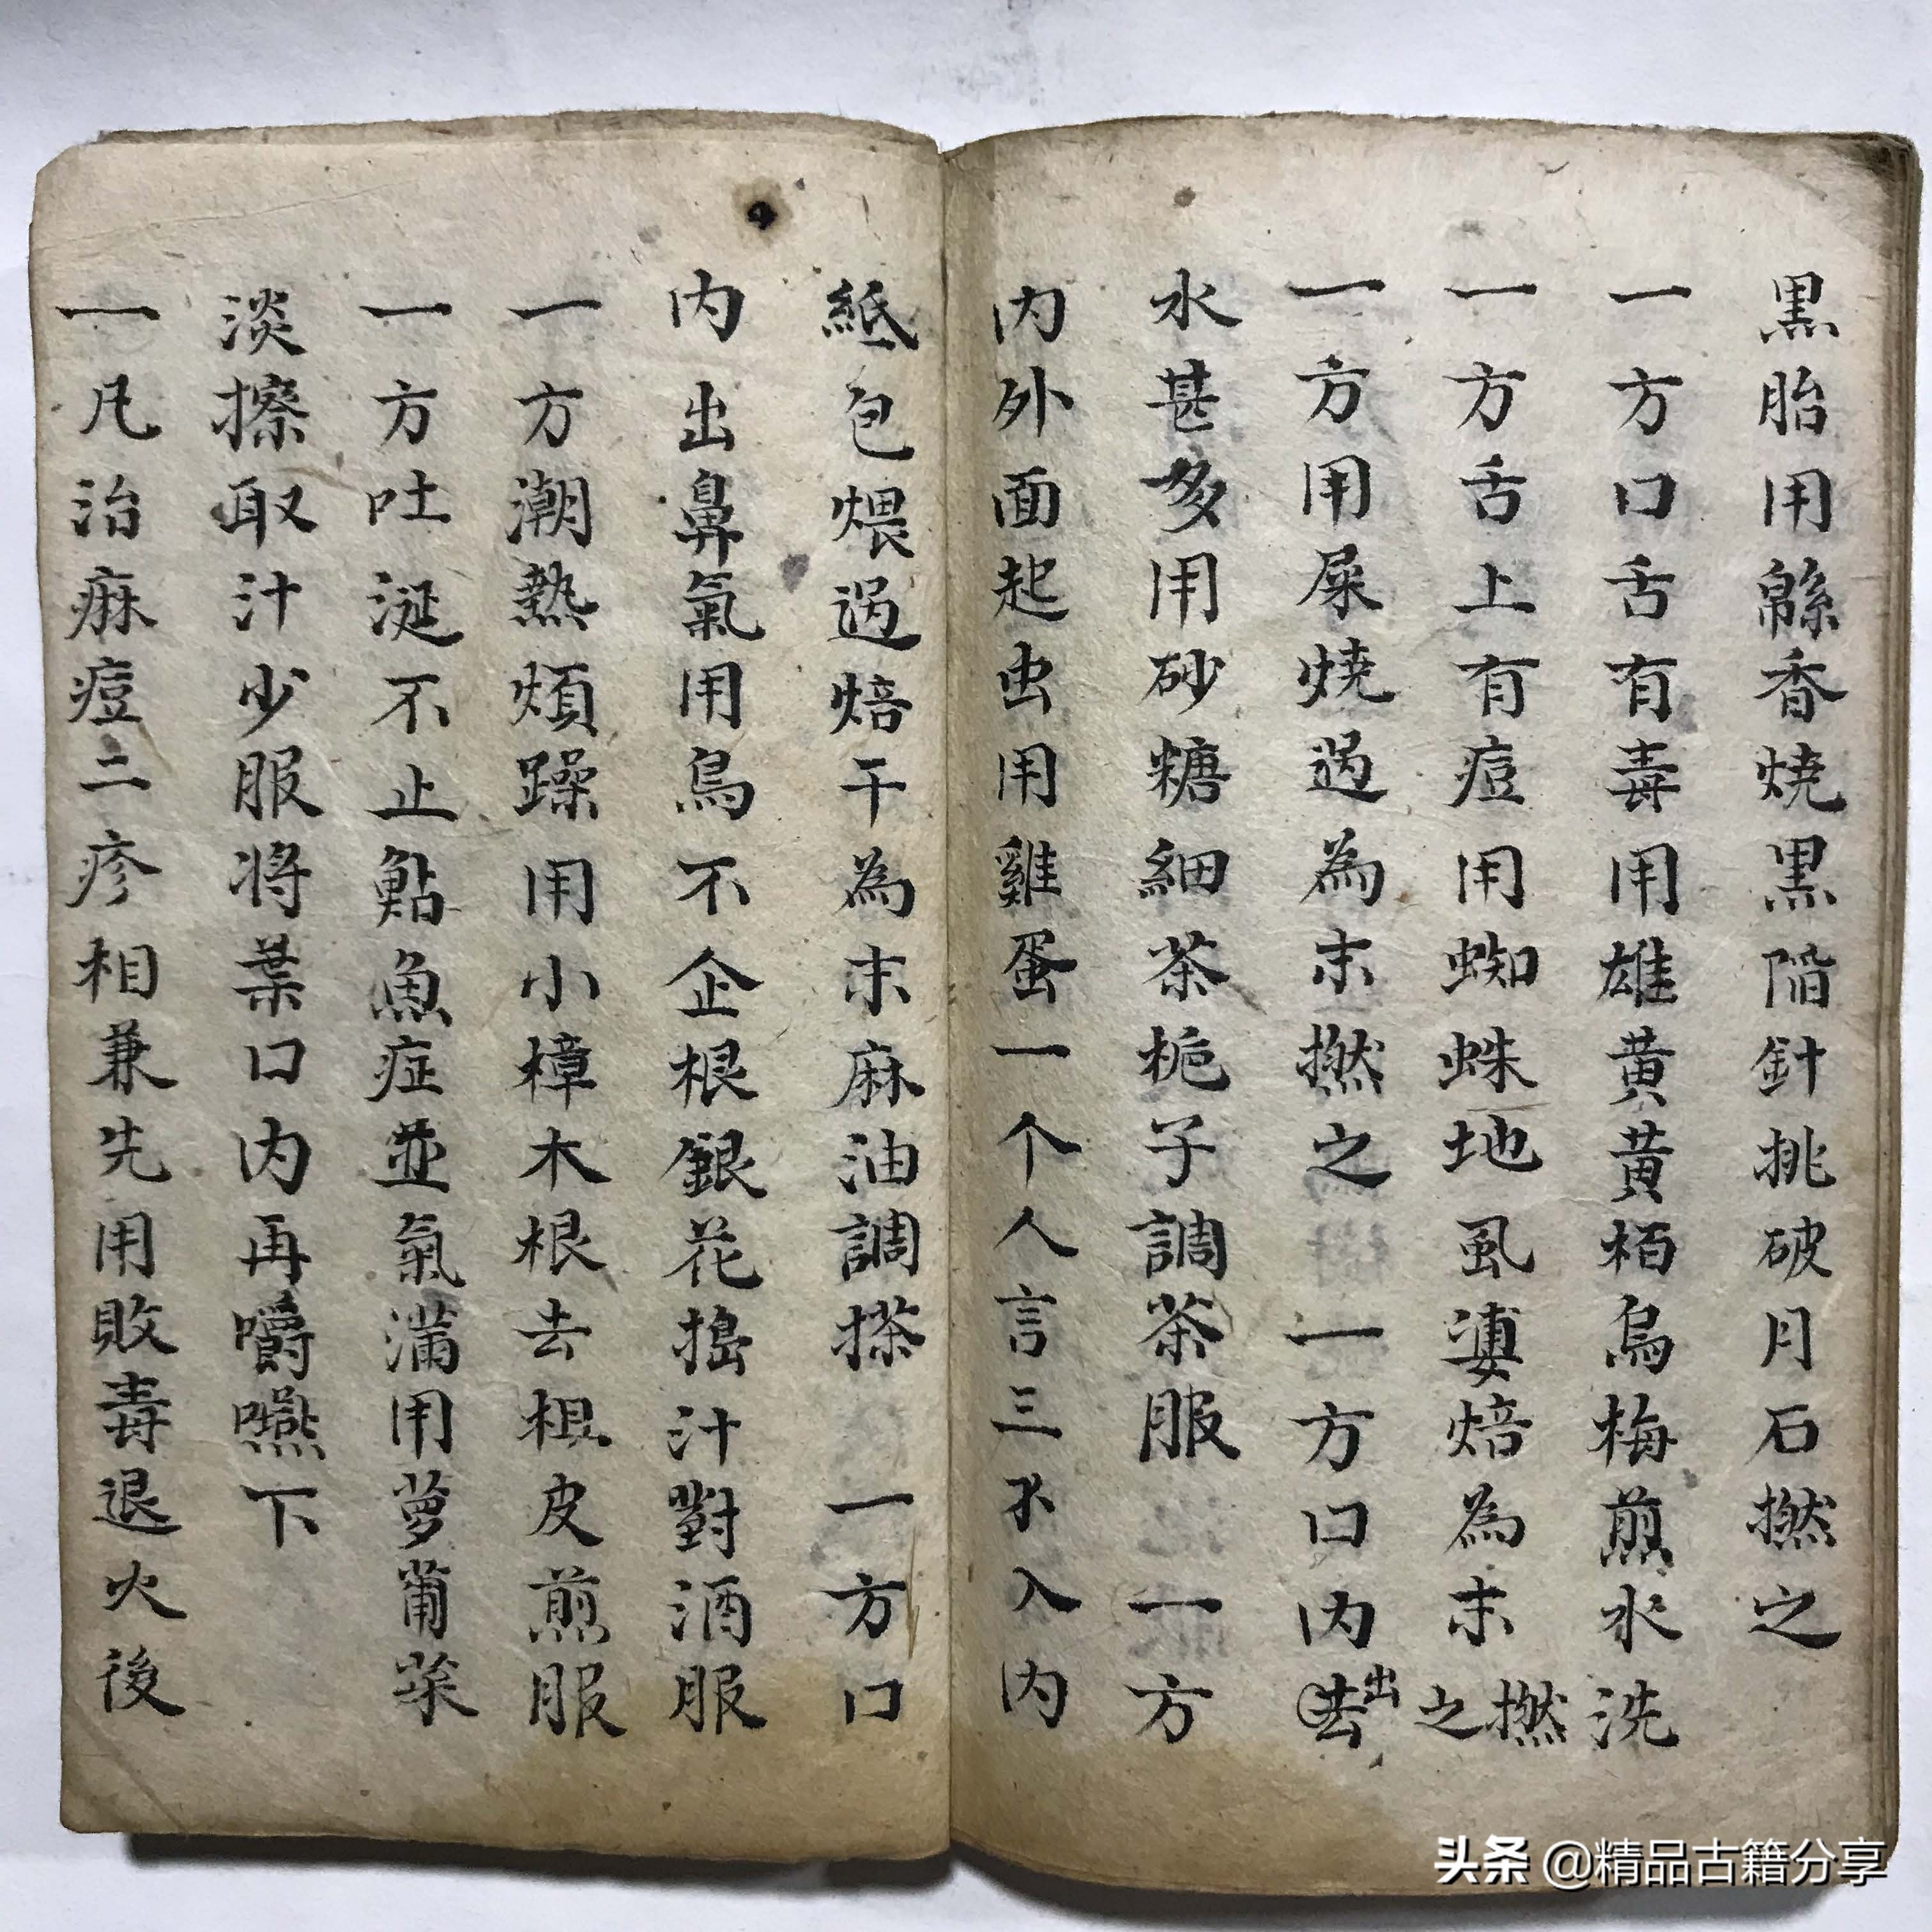 黑胎用緜香燒黑階針挑破月石撚之
一方口舌有毒用雄黃黃栢烏梅煎水洗
一方舌上有痘用蜘蛛地虱婆焙為末撚之
一方用屎燒過為末撚之 一方口內去出
水甚多用砂糖細茶梔子調茶服 一方
內外面起虫用雞蛋一个人言三不入內
紙包煨過焙干為末麻油調搽 一方口
內出鼻氣用鳥不企根銀花搗汁對酒服
一方潮熱煩躁用小樟木根去粗皮煎服
一方吐涎不止鮎魚症並氣滿用蘿蔔菜
淡擦取汁少服將葉口內再嚼嚥下
一凡治痳痘二疹相兼先用敗毒退火後
头条 @精品古籍分享